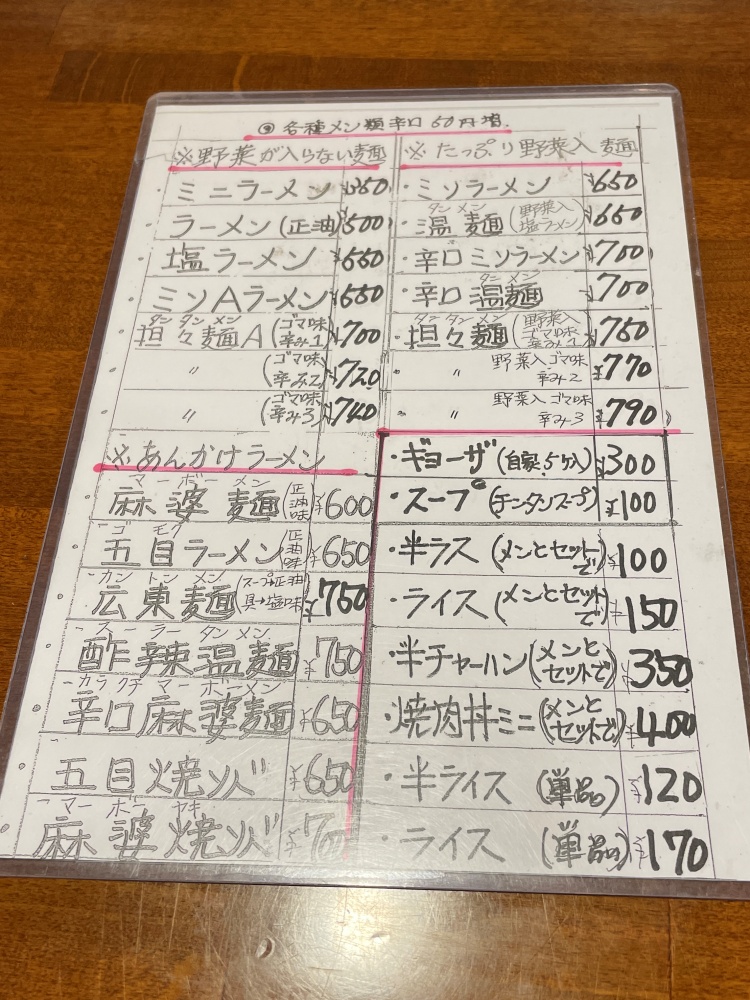 ◎各種メン類辛口50円増.
※野菜が入らない麺
・ミニラーメン ¥350
・ラーメン(正油) ¥500
・塩ラーメン ¥550
・ミソAラーメン
タン タン メン
・担々麺A(ゴマ味 辛み1) ¥700
・〃(ゴマ味 辛み2) ¥720
・〃(ゴマ味 辛み3) ¥740
※あんかけラーメン
マーボーメン
・麻婆麺(正油味) ¥600
ゴモク
・五目ラーメン(正油味) ¥650
カントンメン
・広東麺(スープ→正油 具→塩味) ¥750
スーラータンメン
・酢辣温麺 ¥750
カラクチマーボーメン
・辛口麻婆麺 ¥650
・五目焼ソバ ¥650
マーボーヤキ
・麻婆焼ソバ
※たっぷり野菜入麺
・ミソラーメン ¥650
タンメン
・温麺(野菜入 塩ラーメン) ¥650
・辛口ミソラーメン ¥700
タンメン
・辛口温麺 ¥700
タンタンメン
・担々麺(野菜入 ゴマ味 辛み1) ¥750
・〃 野菜入ゴマ味 辛み2 ¥770
・〃 野菜入ゴマ味 辛み3 ¥790
・ギョーザ(自家.5ヶ入) ¥300
・スープ(チンタンスープ) ¥100
・半ラス(メンとセットで) ¥100
・ライス(メンとセットで) ¥150
・半チャーハン(メンとセットで) ¥350
・焼肉丼ミニ(メンとセットで) ¥400
・半ライス(単品) ¥120
・ライス(単品) ¥170